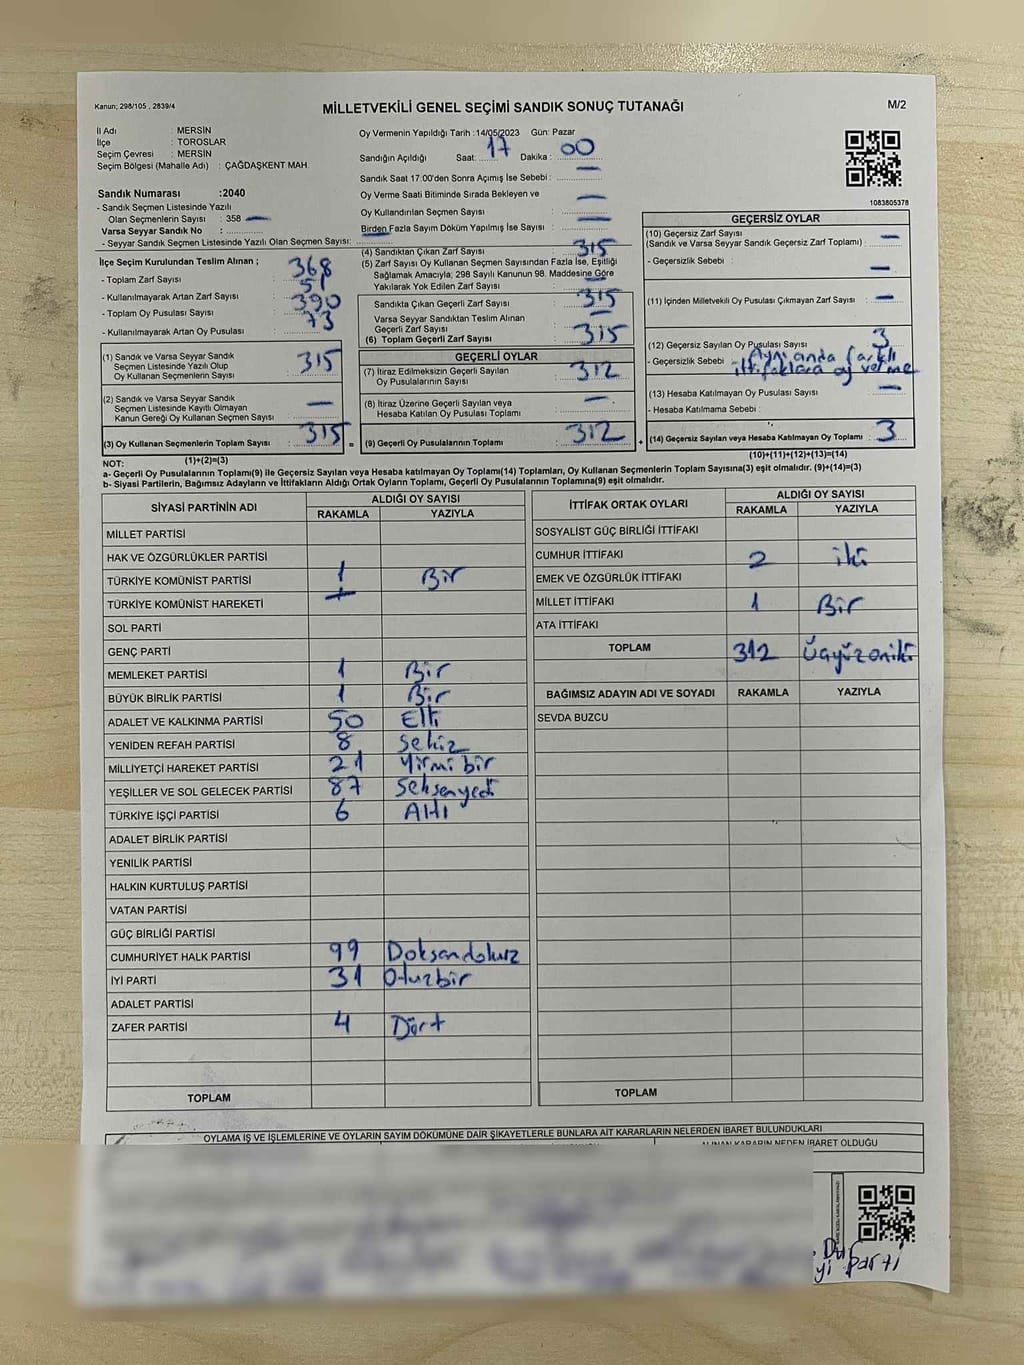 Kanun; 298/105 , 2839/4
MİLLETVEKİLİ GENEL SEÇİMİ SANDIK SONUÇ TUTANAĞI
M/2
İl Adı : MERSİN
İlçe : TOROSLAR
Seçim Çevresi : MERSİN
Seçim Bölgesi (Mahalle Adı) : ÇAĞDAŞKENT MAH.
Sandık Numarası :2040
- Sandık Seçmen Listesinde Yazılı
Olan Seçmenlerin Sayısı : 358 —
Varsa Seyyar Sandık No :
- Seyyar Sandık Seçmen Listesinde Yazılı Olan Seçmen Sayısı:
Oy Vermenin Yapıldığı Tarih :14/05/2023 Gün: Pazar
Sandığın Açıldığı Saat: 17 Dakika : 00
Sandık Saat 17.00'den Sonra Açımış İse Sebebi : —
Oy Verme Saati Bitiminde Sırada Bekleyen ve
Oy Kullandırılan Seçmen Sayısı —
Birden Fazla Sayım Döküm Yapılmış İse Sayısı : —
1083805378
İlçe Seçim Kurulundan Teslim Alınan ;
- Toplam Zarf Sayısı : 368
- Kullanılmayarak Artan Zarf Sayısı : 51
- Toplam Oy Pusulası Sayısı : 390
- Kullanılmayarak Artan Oy Pusulası : 73
(1) Sandık ve Varsa Seyyar Sandık
Seçmen Listesinde Yazılı Olup
Oy Kullanan Seçmenlerin Sayısı : 315
(2) Sandık ve Varsa Seyyar Sandık
Seçmen Listesinde Kayıtlı Olmayan
Kanun Gereği Oy Kullanan Seçmen Sayısı —
(3) Oy Kullanan Seçmenlerin Toplam Sayısı : 315 =
(1)+(2)=(3)
(4) Sandıktan Çıkan Zarf Sayısı : 315
(5) Zarf Sayısı Oy Kullanan Seçmen Sayısından Fazla İse, Eşitliği
Sağlamak Amacıyla; 298 Sayılı Kanunun 98. Maddesine Göre
Yakılarak Yok Edilen Zarf Sayısı : —
Sandıkta Çıkan Geçerli Zarf Sayısı : 315
Varsa Seyyar Sandıktan Teslim Alınan
Geçerli Zarf Sayısı : —
(6) Toplam Geçerli Zarf Sayısı : 315
GEÇERLİ OYLAR
(7) İtiraz Edilmeksizin Geçerli Sayılan
Oy Pusulalarının Sayısı : 312
(8) İtiraz Üzerine Geçerli Sayılan veya
Hesaba Katılan Oy Pusulası Toplamı : —
(9) Geçerli Oy Pusulalarının Toplamı : 312 +
GEÇERSİZ OYLAR
(10) Geçersiz Zarf Sayısı
(Sandık ve Varsa Seyyar Sandık Geçersiz Zarf Toplamı) : —
- Geçersizlik Sebebi : —
(11) İçinden Milletvekili Oy Pusulası Çıkmayan Zarf Sayısı : —
(12) Geçersiz Sayılan Oy Pusulası Sayısı : 3
- Geçersizlik Sebebi : Aynı anda farklı
ittifaklara oy verme
(13) Hesaba Katılmayan Oy Pusulası Sayısı : —
- Hesaba Katılmama Sebebi :
(14) Geçersiz Sayılan veya Hesaba Katılmayan Oy Toplamı : 3
(10)+(11)+(12)+(13)=(14)
NOT:
a- Geçerli Oy Pusulalarının Toplamı(9) ile Geçersiz Sayılan veya Hesaba katılmayan Oy Toplamı(14) Toplamları, Oy Kullanan Seçmenlerin Toplam Sayısına(3) eşit olmalıdır. (9)+(14)=(3)
b- Siyasi Partilerin, Bağımsız Adayların ve İttifakların Aldığı Ortak Oyların Toplamı, Geçerli Oy Pusulalarının Toplamına(9) eşit olmalıdır.
SİYASİ PARTİNİN ADI ALDIĞI OY SAYISI
RAKAMLA YAZIYLA
MİLLET PARTİSİ
HAK VE ÖZGÜRLÜKLER PARTİSİ
TÜRKİYE KOMÜNİST PARTİSİ 1 Bir
TÜRKİYE KOMÜNİST HAREKETİ
SOL PARTİ
GENÇ PARTİ
MEMLEKET PARTİSİ 1 Bir
BÜYÜK BİRLİK PARTİSİ 1 Bir
ADALET VE KALKINMA PARTİSİ 50 Elli
YENİDEN REFAH PARTİSİ 8 Sekiz
MİLLİYETÇİ HAREKET PARTİSİ 21 Yirmi bir
YEŞİLLER VE SOL GELECEK PARTİSİ 87 Seksenyedi
TÜRKİYE İŞÇİ PARTİSİ 6 Altı
ADALET BİRLİK PARTİSİ
YENİLİK PARTİSİ
HALKIN KURTULUŞ PARTİSİ
VATAN PARTİSİ
GÜÇ BİRLİĞİ PARTİSİ
CUMHURİYET HALK PARTİSİ 99 Doksandokuz
İYİ PARTİ 31 Otuzbir
ADALET PARTİSİ
ZAFER PARTİSİ 4 Dört
TOPLAM
İTTİFAK ORTAK OYLARI ALDIĞI OY SAYISI
RAKAMLA YAZIYLA
SOSYALİST GÜÇ BİRLİĞİ İTTİFAKI
CUMHUR İTTİFAKI 2 iki
EMEK VE ÖZGÜRLÜK İTTİFAKI
MİLLET İTTİFAKI 1 Bir
ATA İTTİFAKI
TOPLAM 312 Üçyüzoniki
BAĞIMSIZ ADAYIN ADI VE SOYADI RAKAMLA YAZIYLA
SEVDA BUZCU
TOPLAM
OYLAMA İŞ VE İŞLEMLERİNE VE OYLARIN SAYIM DÖKÜMÜNE DAİR ŞİKAYETLERLE BUNLARA AİT KARARLARIN NELERDEN İBARET BULUNDUKLARI
ALINAN KARARIN NEDEN İBARET OLDUĞU
yi parti